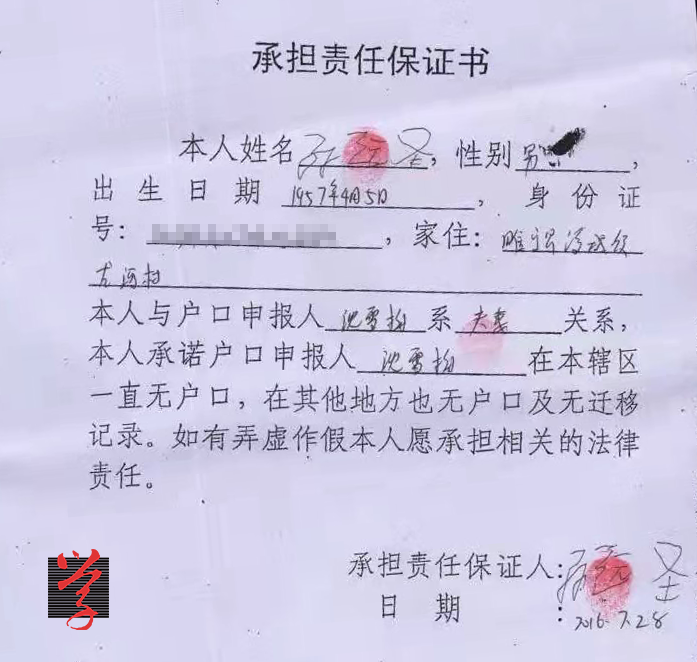 承担责任保证书
本人姓名 圣，性别 男，
出生日期 1957年4月5日，身份证
号：，家住：睢宁
古河村
本人与户口申报人 沈雪梅 系 夫妻 关系，
本人承诺户口申报人 沈雪梅 在本辖区
一直无户口，在其他地方也无户口及无迁移
记录。如有弄虚作假本人愿承担相关的法律
责任。
承担责任保证人： 圣
日期：2016.7.28
学